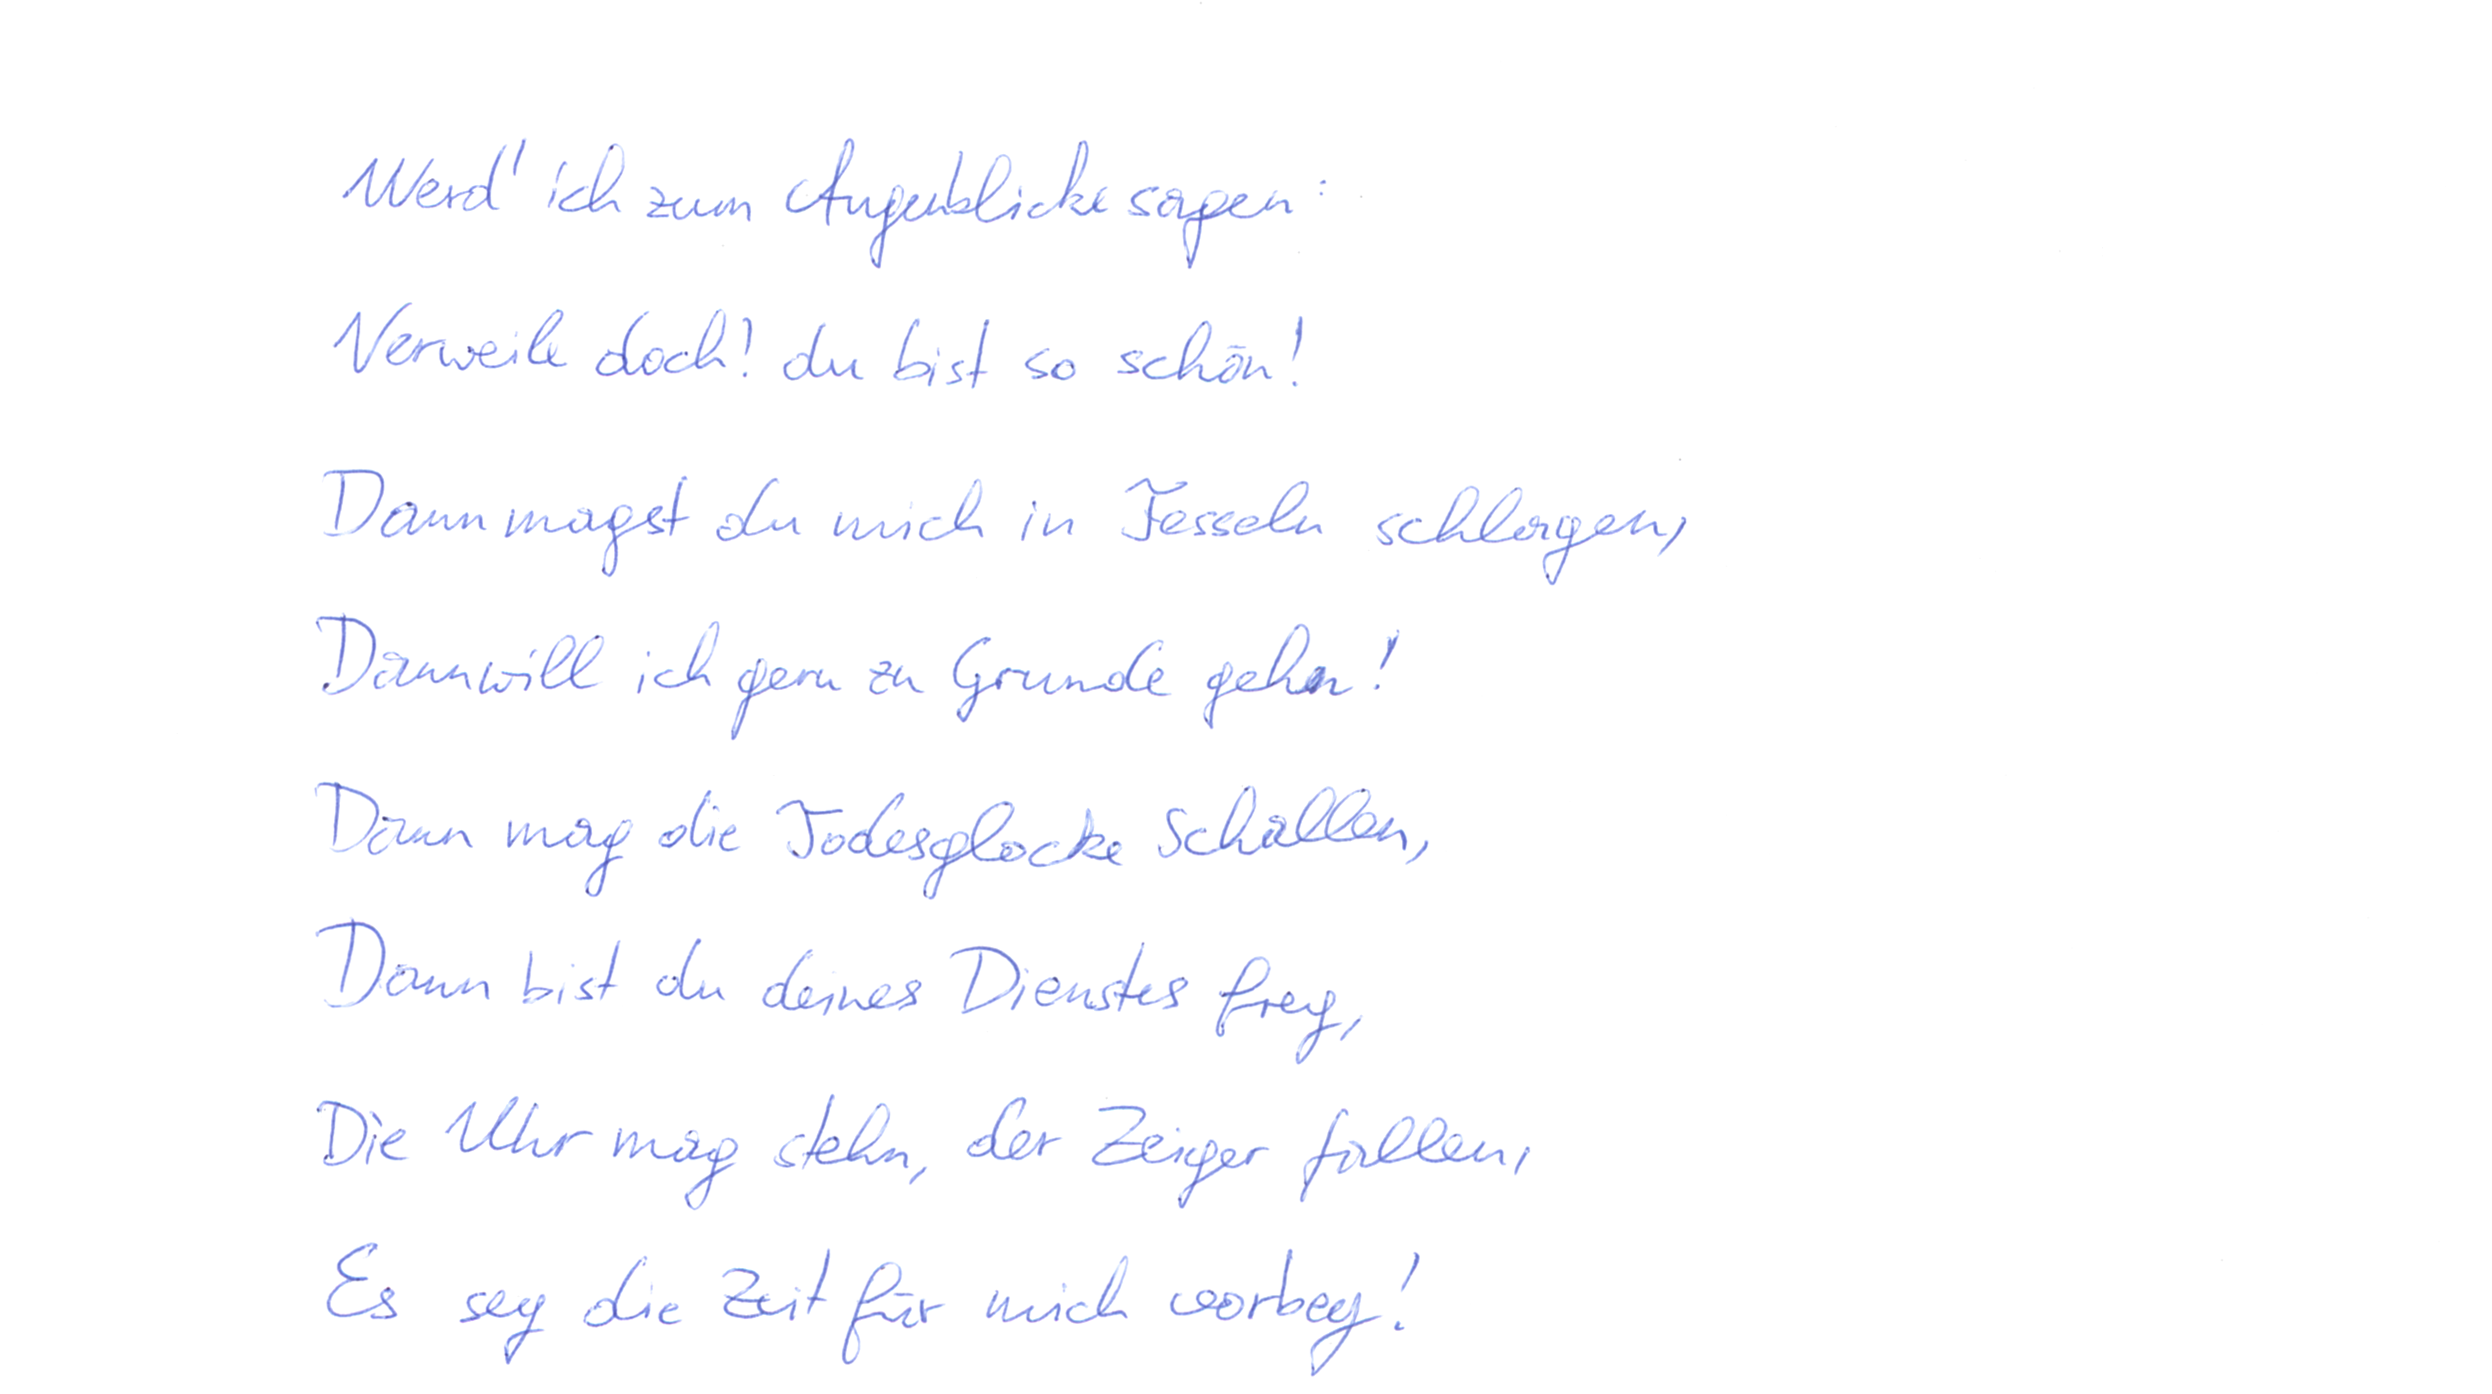 Werd' ich zum Augenblicke sagen:
Verweile doch! du bist so schön!
Dann magst du mich in Fesseln schlagen,
Dann will ich gern zu Grunde gehn!
Dann mag die Todesglocke schallen,
Dann bist du deines Dienstes frey,
Die Uhr mag stehn, der Zeiger fallen,
Es sey die Zeit für mich vorbey!